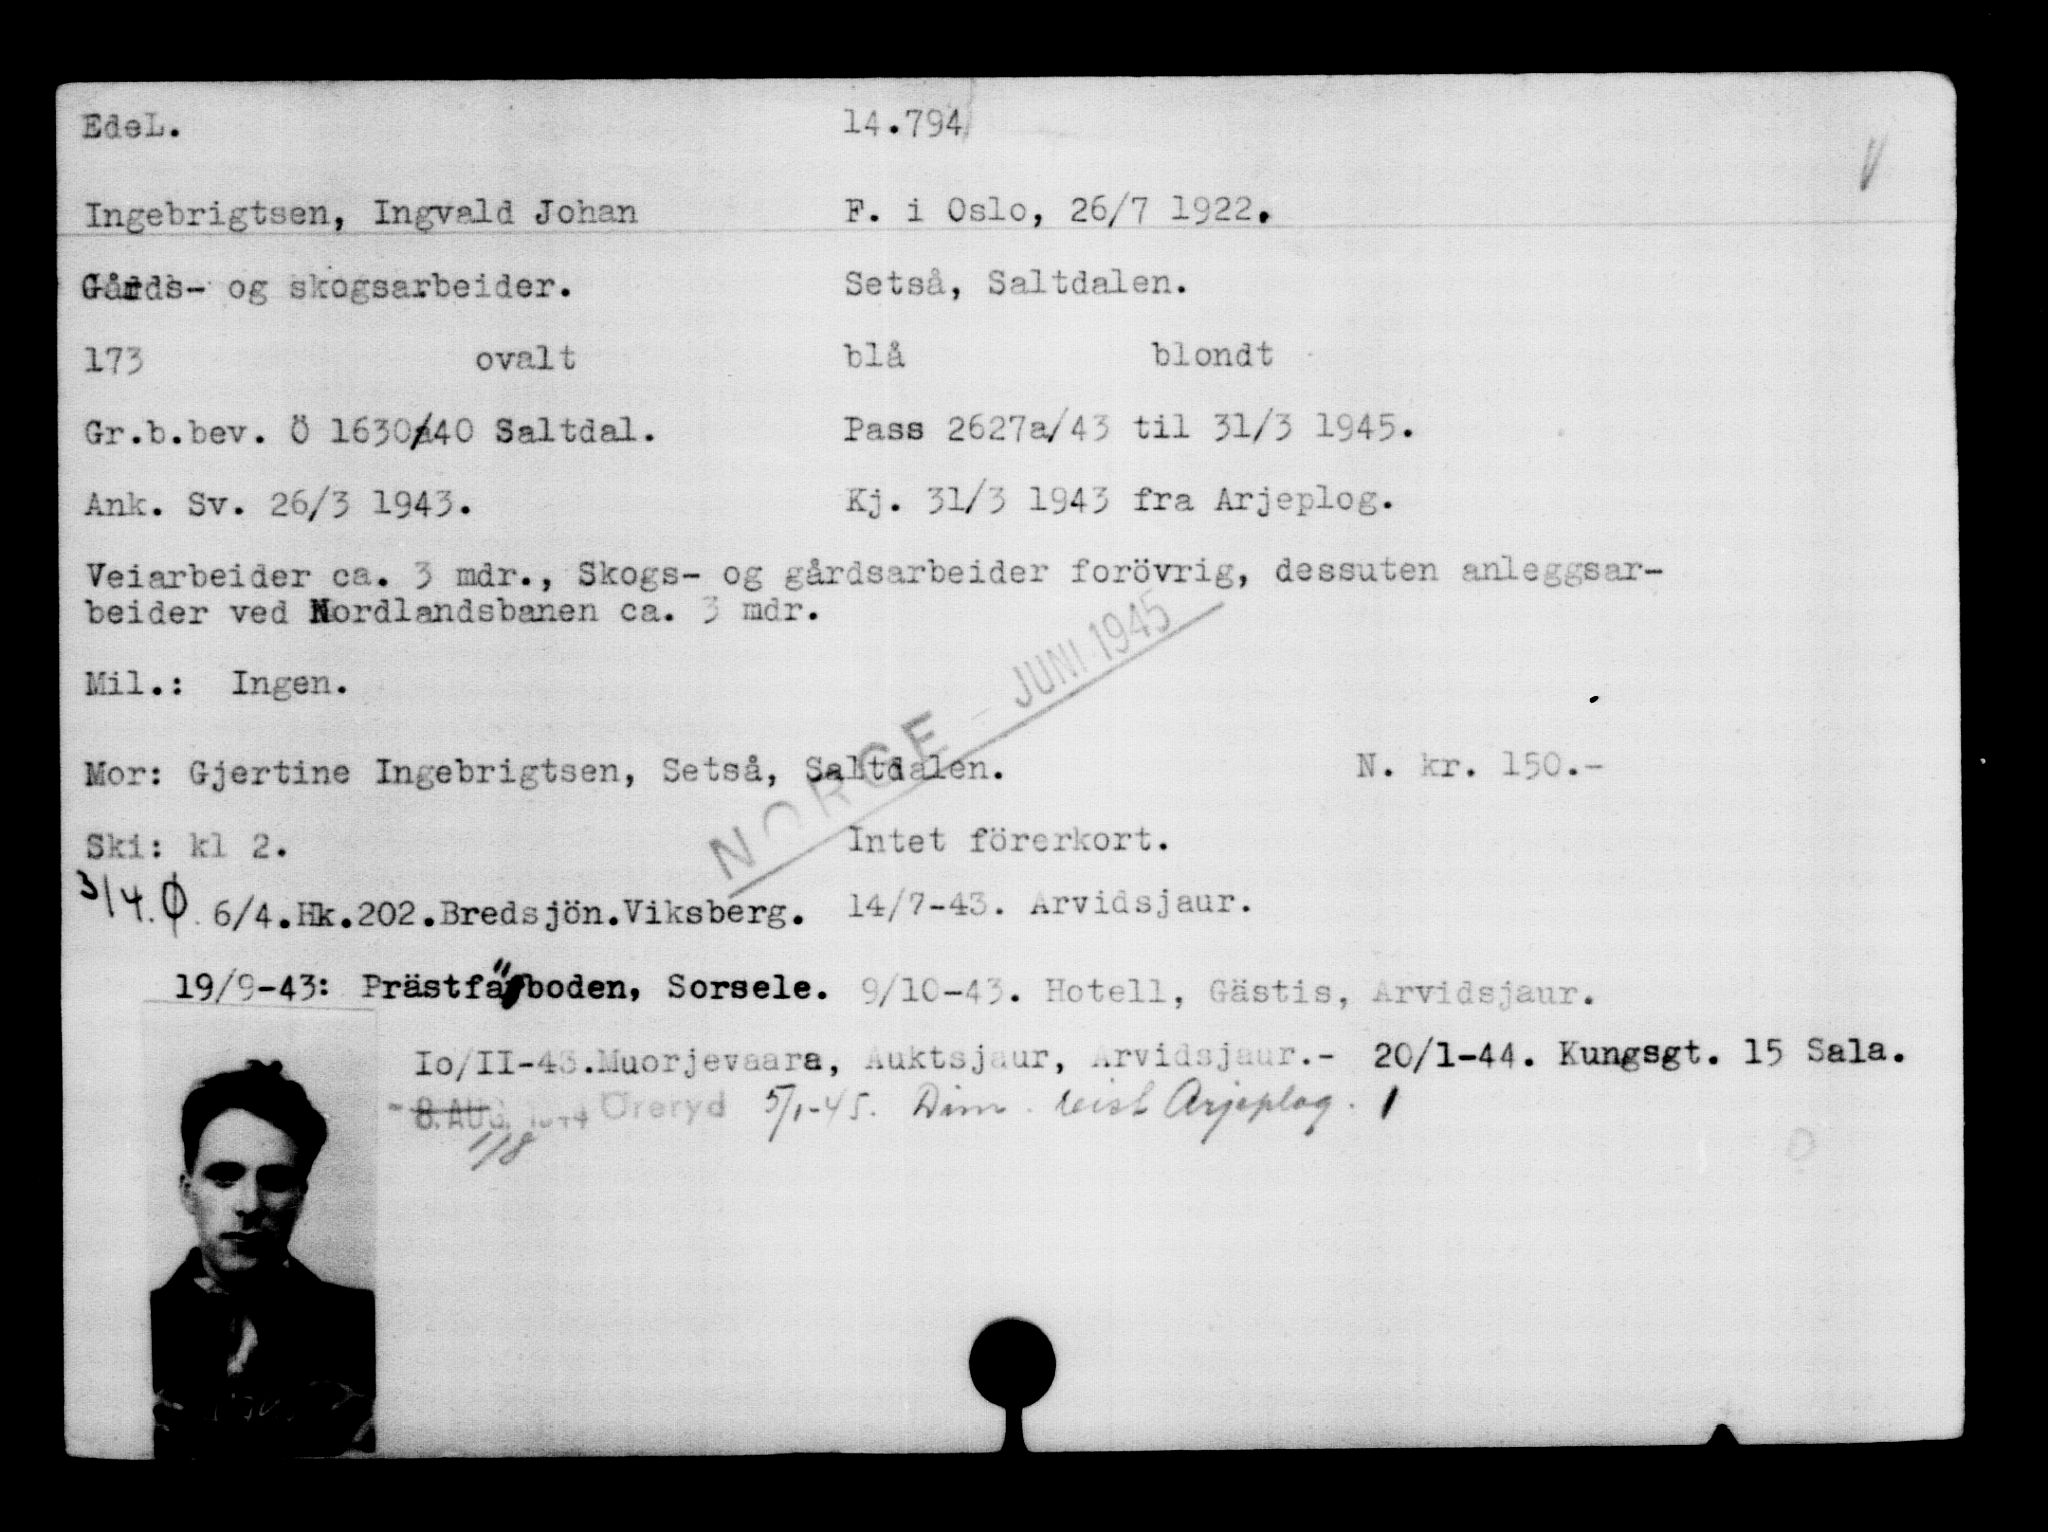 EdeL. 14.794
Ingebrigtsen, Ingvald Johan F. i Oslo, 26/7 1922.
Gårds- og skogsarbeider. Setså, Saltdalen.
173 ovalt blå blondt
Gr.b.bev. Ö 1630/40 Saltdal. Pass 2627a/43 til 31/3 1945.
Ank. Sv. 26/3 1943. Kj. 31/3 1943 fra Arjeplog.
Veiarbeider ca. 3 mdr., Skogs- og gårdsarbeider forövrig, dessuten anleggsar-
beider ved Nordlandsbanen ca. 3 mdr.
NORGE - JUNI 1945
Mil.: Ingen.
Mor: Gjertine Ingebrigtsen, Setså, Saltdalen. N. kr. 150.-
Ski: kl 2. Intet förerkort.
3/4. Ø. 6/4.Hk.202.Bredsjön.Viksberg. 14/7-43. Arvidsjaur.
19/9-43: Prästfäboden, Sorsele. 9/10-43. Hotell, Gästis, Arvidsjaur.
Io/II-43.Muorjevaara, Auktsjaur, Arvidsjaur.- 20/1-44. Kungsgt. 15 Sala.
- 8. AUG. 1944 Öreryd 5/1-45. Dim. Arjeplog.
1/8